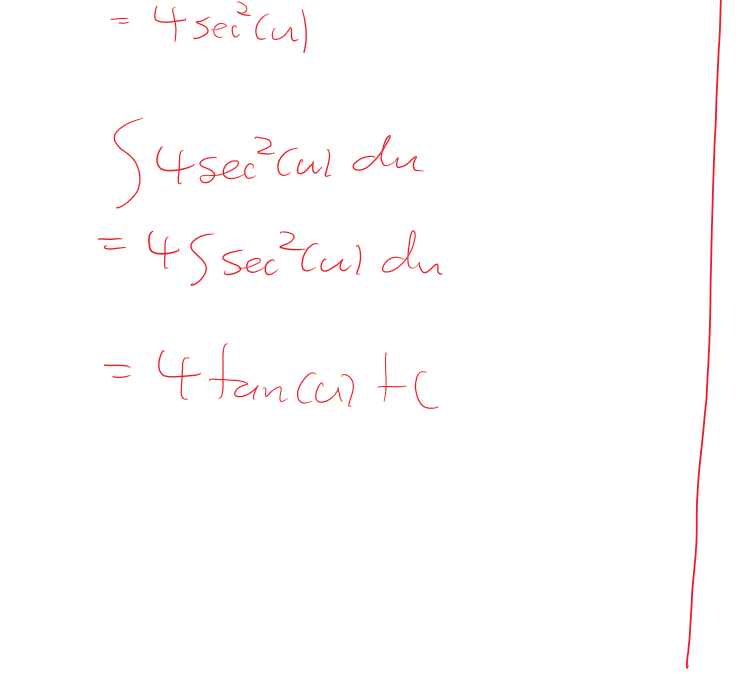 = 4 sec²(u)
∫ 4 sec²(u) du
= 4 ∫ sec²(u) du
= 4 tan(u) + C